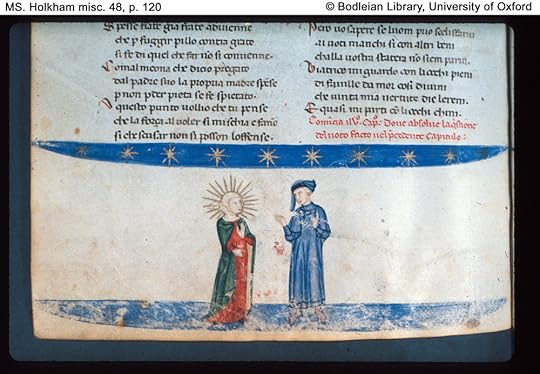 MS. Holkham misc. 48, p. 120
© Bodleian Library, University of Oxford
Spesse fiate gia frate adivenne
che p fuggir pillo contra grato
si fe di quel che far no si convenne.
Comalmeona che dicio pregato
dal padre suo la propria madre spese
p non pder pieta se fe spietato.
A questo punto vollio che tu pense
che la força al voler si mischia e fano
si che scusar non si posson loffense.
vo sapere se luom puo
ai voti manchi si con altri beni
challa vostra statera no sien parui.
mi guardo con liocchi pieni
di faville da mor cosi divini
che vinta mia vertute die lereni.
E quasi mi p liocchi chini.
Comincia il V. Cap. Dove absolve la qstione
del voto facto nel pcedente Capitulo: